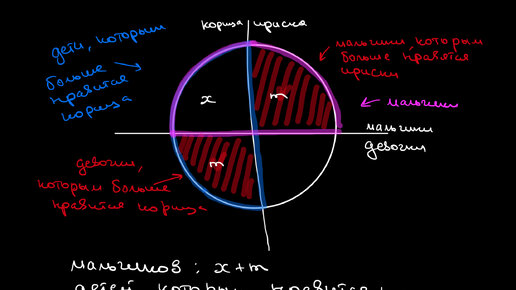 корица ириска
дети, которым
больше
нравится
корица
мальчики, которым
больше нравятся
ириски
x
m
мальчики
мальчики
девочки
девочки,
которым больше
нравится корица
m
мальчиков : x+m
детей которым нравится